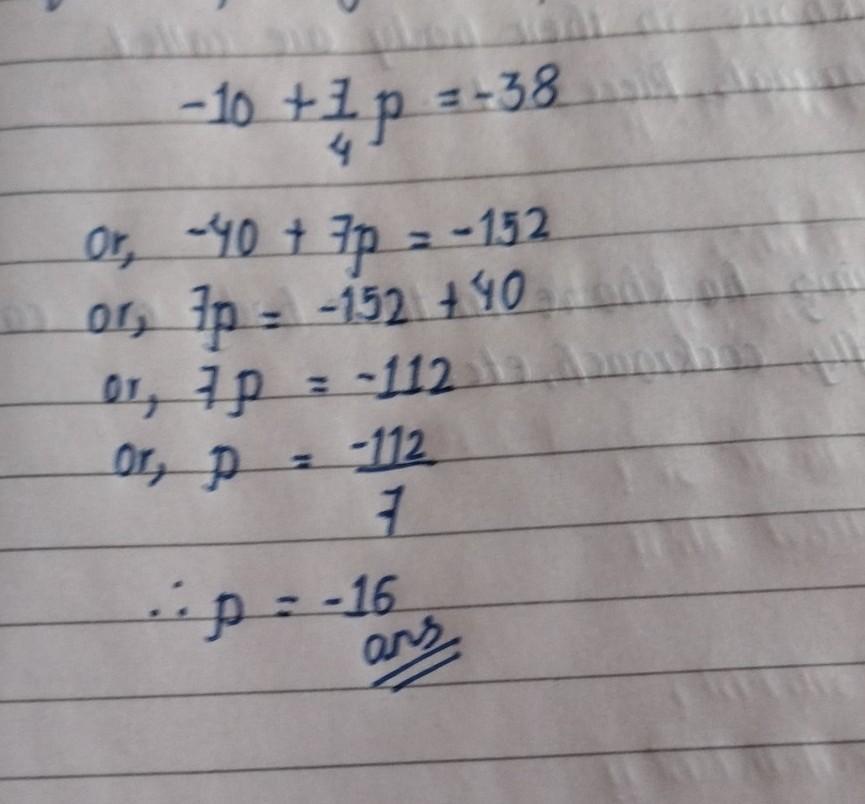 -10 + 7/4 p = -38
or, -40 + 7p = -152
or, 7p = -152 + 40
or, 7p = -112
or, p = -112/7
∴ p = -16
ans